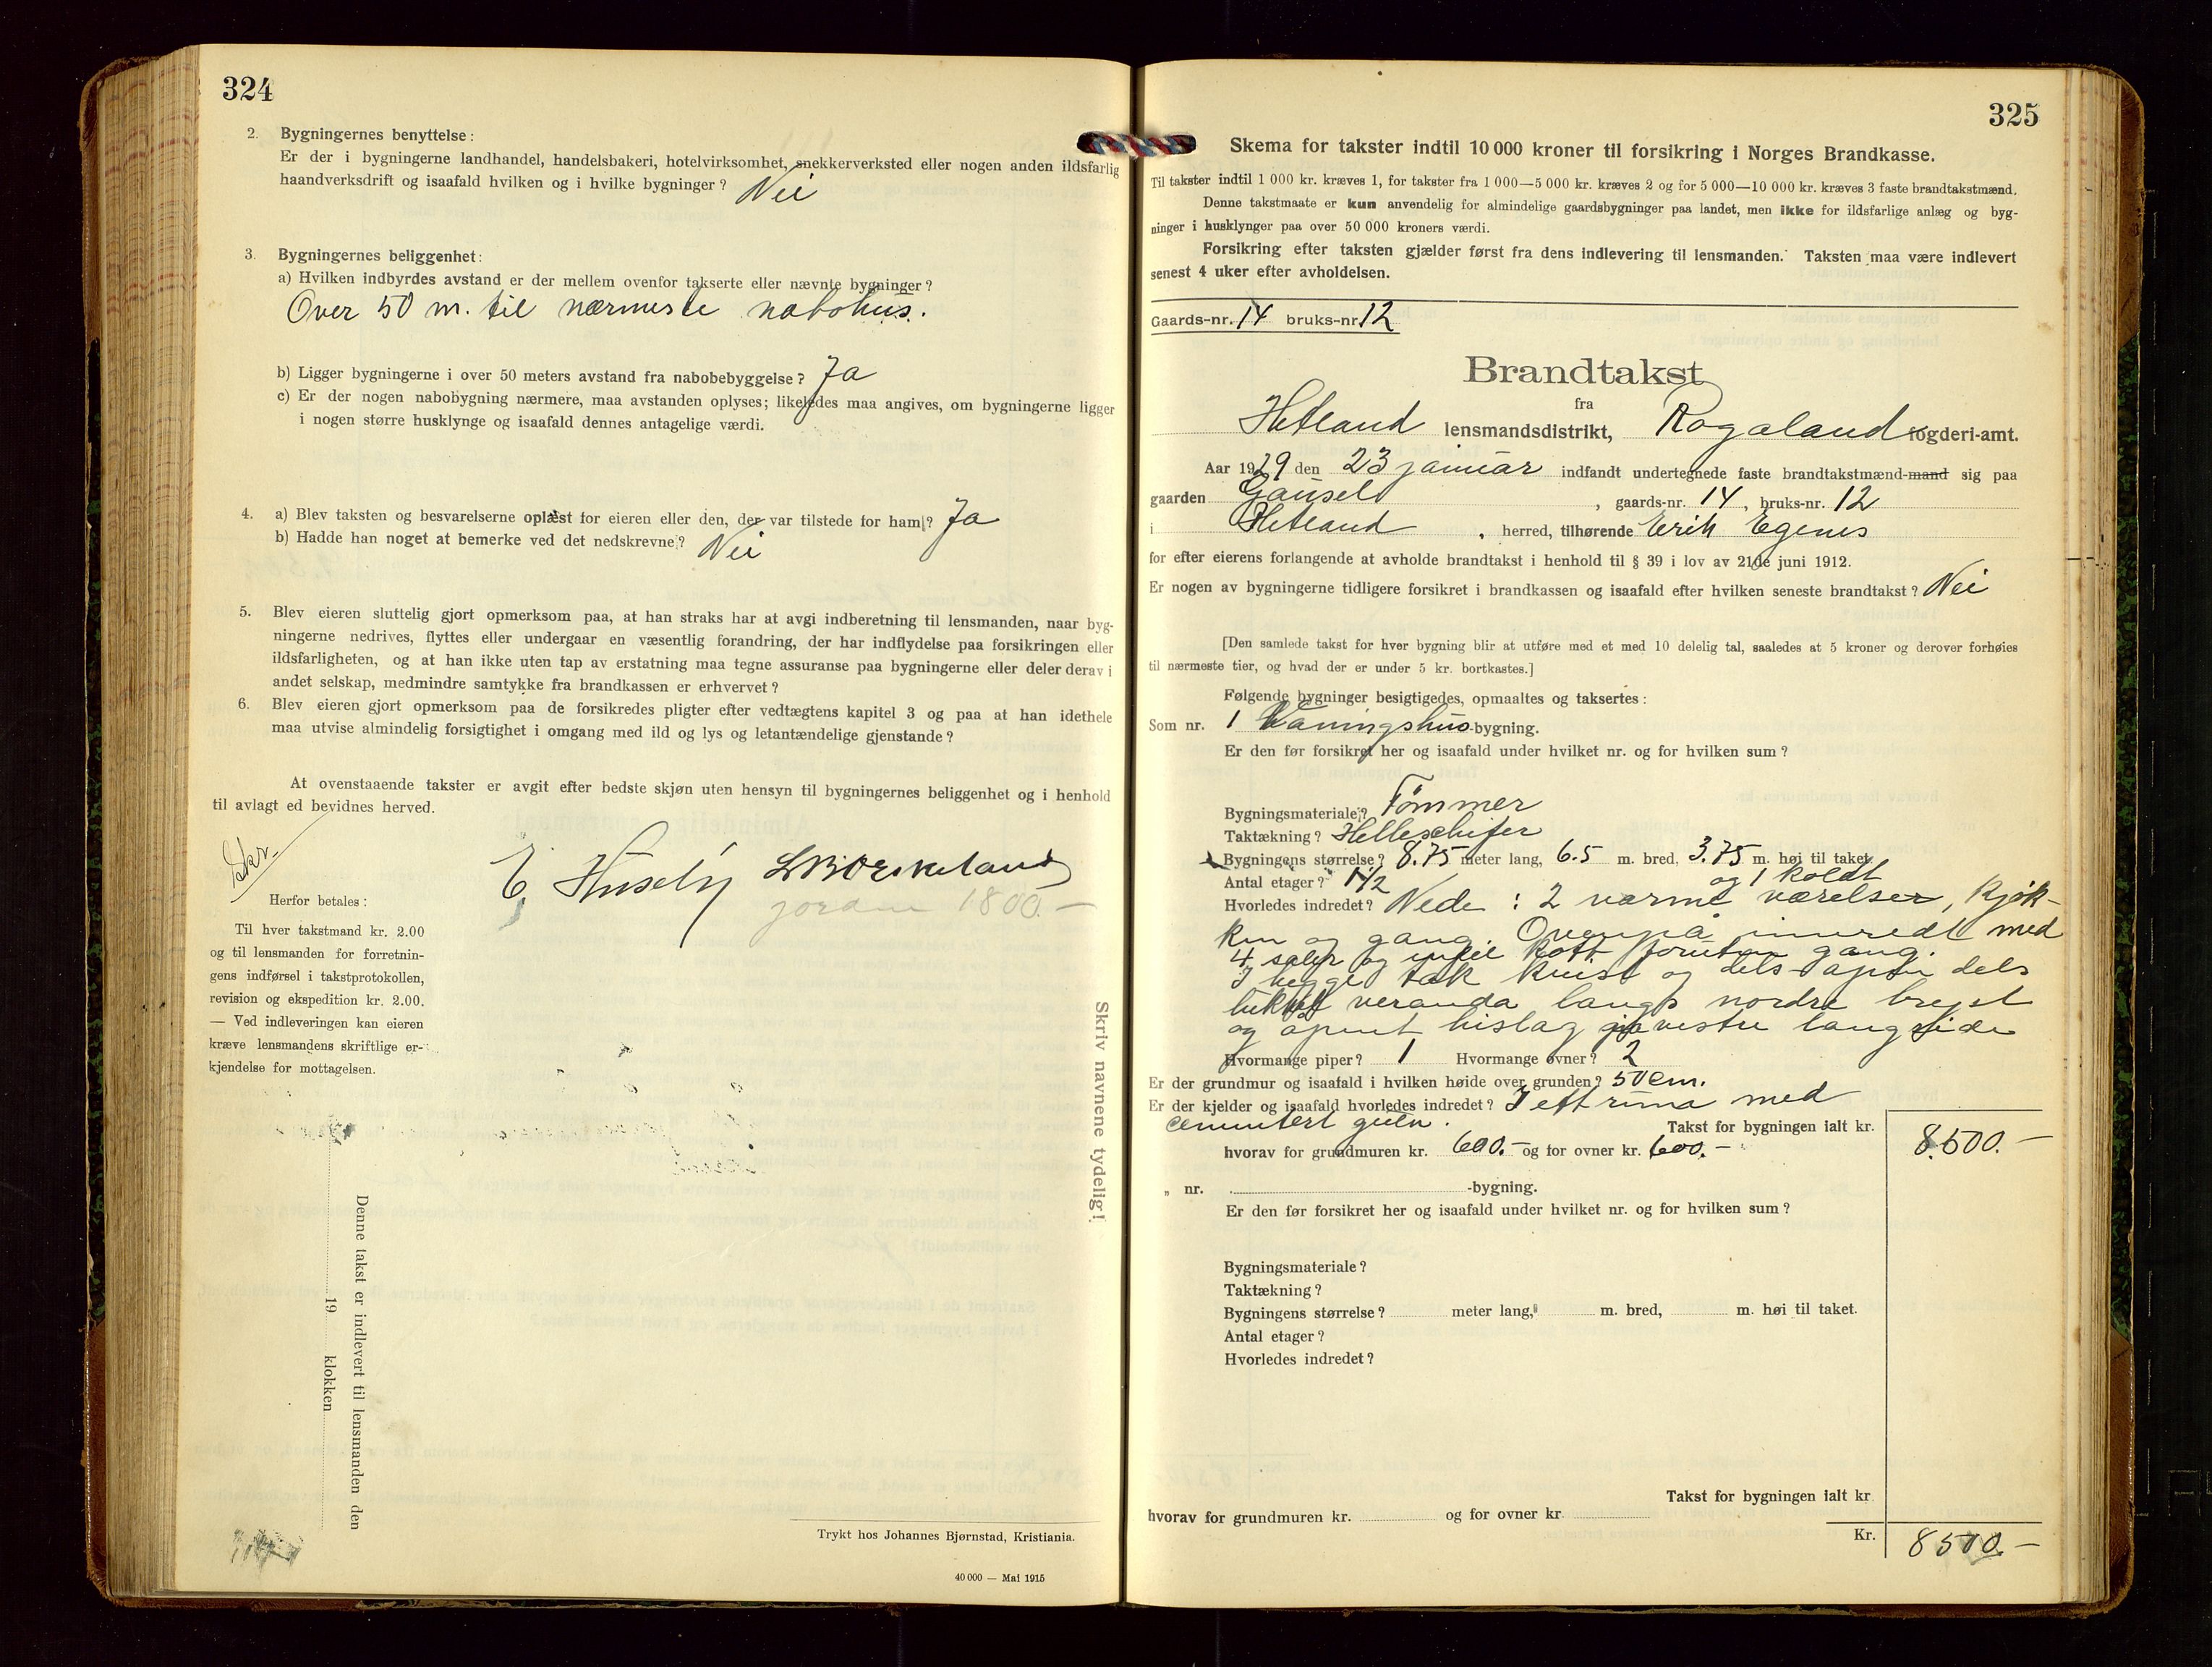 324
2. Bygningernes benyttelse:
Er der i bygningerne landhandel, handelsbakeri, hotelvirksomhet, snekkerverksted eller nogen anden ildsfarlig
haandverksdrift og isaafald hvilken og i hvilke bygninger? Nei
3. Bygningernes beliggenhet:
a) Hvilken indbyrdes avstand er der mellem ovenfor takserte eller nævnte bygninger?
Over 50 m. til nærmeste nabohus.
b) Ligger bygningerne i over 50 meters avstand fra nabobebyggelse? Ja
c) Er der nogen nabobygning nærmere, maa avstanden oplyses; likeledes maa angives, om bygningerne ligger
i nogen større husklynge og isaafald dennes antagelige værdi.
4. a) Blev taksten og besvarelserne oplæst for eieren eller den, der var tilstede for ham? Ja
b) Hadde han noget at bemerke ved det nedskrevne? Nei
5. Blev eieren sluttelig gjort opmerksom paa, at han straks har at avgi indberetning til lensmanden, naar byg-
ningerne nedrives, flyttes eller undergaar en væsentlig forandring, der har indflydelse paa forsikringen eller
ildsfarligheten, og at han ikke uten tap av erstatning maa tegne assuranse paa bygningerne eller deler derav i
andet selskap, medmindre samtykke fra brandkassen er erhvervet?
6. Blev eieren gjort opmerksom paa de forsikredes pligter efter vedtægtens kapitel 3 og paa at han idethele
maa utvise almindelig forsigtighet i omgang med ild og lys og letantændelige gjenstande?
At ovenstaaende takster er avgit efter bedste skjøn uten hensyn til bygningernes beliggenhet og i henhold
til avlagt ed bevidnes herved.
E. Husely
jordm 1800.—
Herfor betales:
Til hver takstmand kr. 2.00
og til lensmanden for forretnin-
gens indførsel i takstprotokollen,
revision og ekspedition kr. 2.00.
— Ved indleveringen kan eieren
kræve lensmandens skriftlige er-
kjendelse for mottagelsen.
Skriv navnene tydelig!
Denne takst er indlevert til lensmanden den
19 klokken
Trykt hos Johannes Bjørnstad, Kristiania.
40 000 — Mai 1915
325
Skema for takster indtil 10 000 kroner til forsikring i Norges Brandkasse.
Til takster indtil 1 000 kr. kræves 1, for takster fra 1 000—5 000 kr. kræves 2 og for 5 000—10 000 kr. kræves 3 faste brandtakstmænd.
Denne takstmaate er kun anvendelig for almindelige gaardsbygninger paa landet, men ikke for ildsfarlige anlæg og byg-
ninger i husklynger paa over 50 000 kroners værdi.
Forsikring efter taksten gjælder først fra dens indlevering til lensmanden. Taksten maa være indlevert
senest 4 uker efter avholdelsen.
Gaards-nr. 14 bruks-nr. 12
Brandtakst
fra
Hetland lensmandsdistrikt, Rogaland fogderi-amt.
Aar 1929 den 23 januar indfandt undertegnede faste brandtakstmænd-mand sig paa
gaarden Gausel, gaards-nr. 14, bruks-nr. 12
i Hetland, herred, tilhørende Erik Egenes
for efter eierens forlangende at avholde brandtakst i henhold til § 39 i lov av 21de juni 1912.
Er nogen av bygningerne tidligere forsikret i brandkassen og isaafald efter hvilken seneste brandtakst? Nei
[Den samlede takst for hver bygning blir at utføre med et med 10 delelig tal, saaledes at 5 kroner og derover forhøies
til nærmeste tier, og hvad der er under 5 kr. bortkastes.]
Følgende bygninger besigtigedes, opmaaltes og taksertes:
Som nr. 1 Vaaningshus-bygning.
Er den før forsikret her og isaafald under hvilket nr. og for hvilken sum?
Bygningsmateriale? Tömmer
Taktækning? Helleschifer
Bygningens størrelse? 8.75 meter lang, 6.5 m. bred, 3.75 m. høi til taket.
Antal etager? 1 1/2 og 1 koldt
Hvorledes indredet? Nede: 2 varme værelser, kjøk-
ken og gang. Ovenpå innredt med
4 saler og kott foruten gang.
I begge tak kvist og dels åpen dels
lukket veranda langs nordre bryst
og åpent bislag vestre langside
Hvormange piper? 1 Hvormange ovner? 2
Er der grundmur og isaafald i hvilken høide over grunden? 50 cm.
Er der kjelder og isaafald hvorledes indredet? I ett rum med
cementert gulv.
Takst for bygningen ialt kr. 8.500.—
hvorav for grundmuren kr. 600.— og for ovner kr. 600.—
„ nr. -bygning.
Er den før forsikret her og isaafald under hvilket nr. og for hvilken sum?
Bygningsmateriale?
Taktækning?
Bygningens størrelse? meter lang, m. bred, m. høi til taket.
Antal etager?
Hvorledes indredet?
Takst for bygningen ialt kr.
hvorav for grundmuren kr. og for ovner kr.
Kr. 8500.—